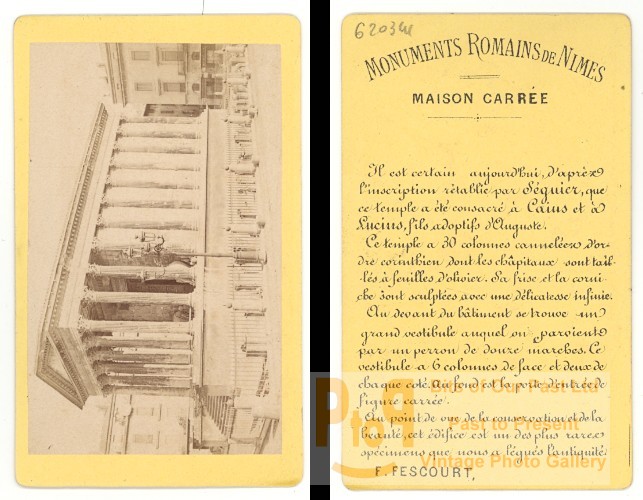 62034
MONUMENTS ROMAINS DE NIMES
MAISON CARRÉE
Il est certain aujourd'hui, d'après
l'inscription rétablie par Séguier, que
ce temple a été consacré à Caius et à
Lucius, fils adoptifs d'Auguste.
Ce temple a 30 colonnes cannelées d'or-
dre corinthien dont les châpitaux sont tail-
lés à feuilles d'olivier. Sa frise et la corni-
che sont sculptées avec une délicatesse infinie.
Au devant du bâtiment se trouve un
grand vestibule auquel on parvient
par un perron de douze marches. Ce
vestibule a 6 colonnes de face et deux de
chaque coté. Au fond est la porte d'entrée de
figure carrée.
Au point de vue de la conservation et de la
beauté, cet édifice est un des plus rares
spécimens que nous a légués l'antiquité.
F. FESCOURT,
PtoP
Bits of Our Past Ltd
Past to Present
Vintage Photo Gallery